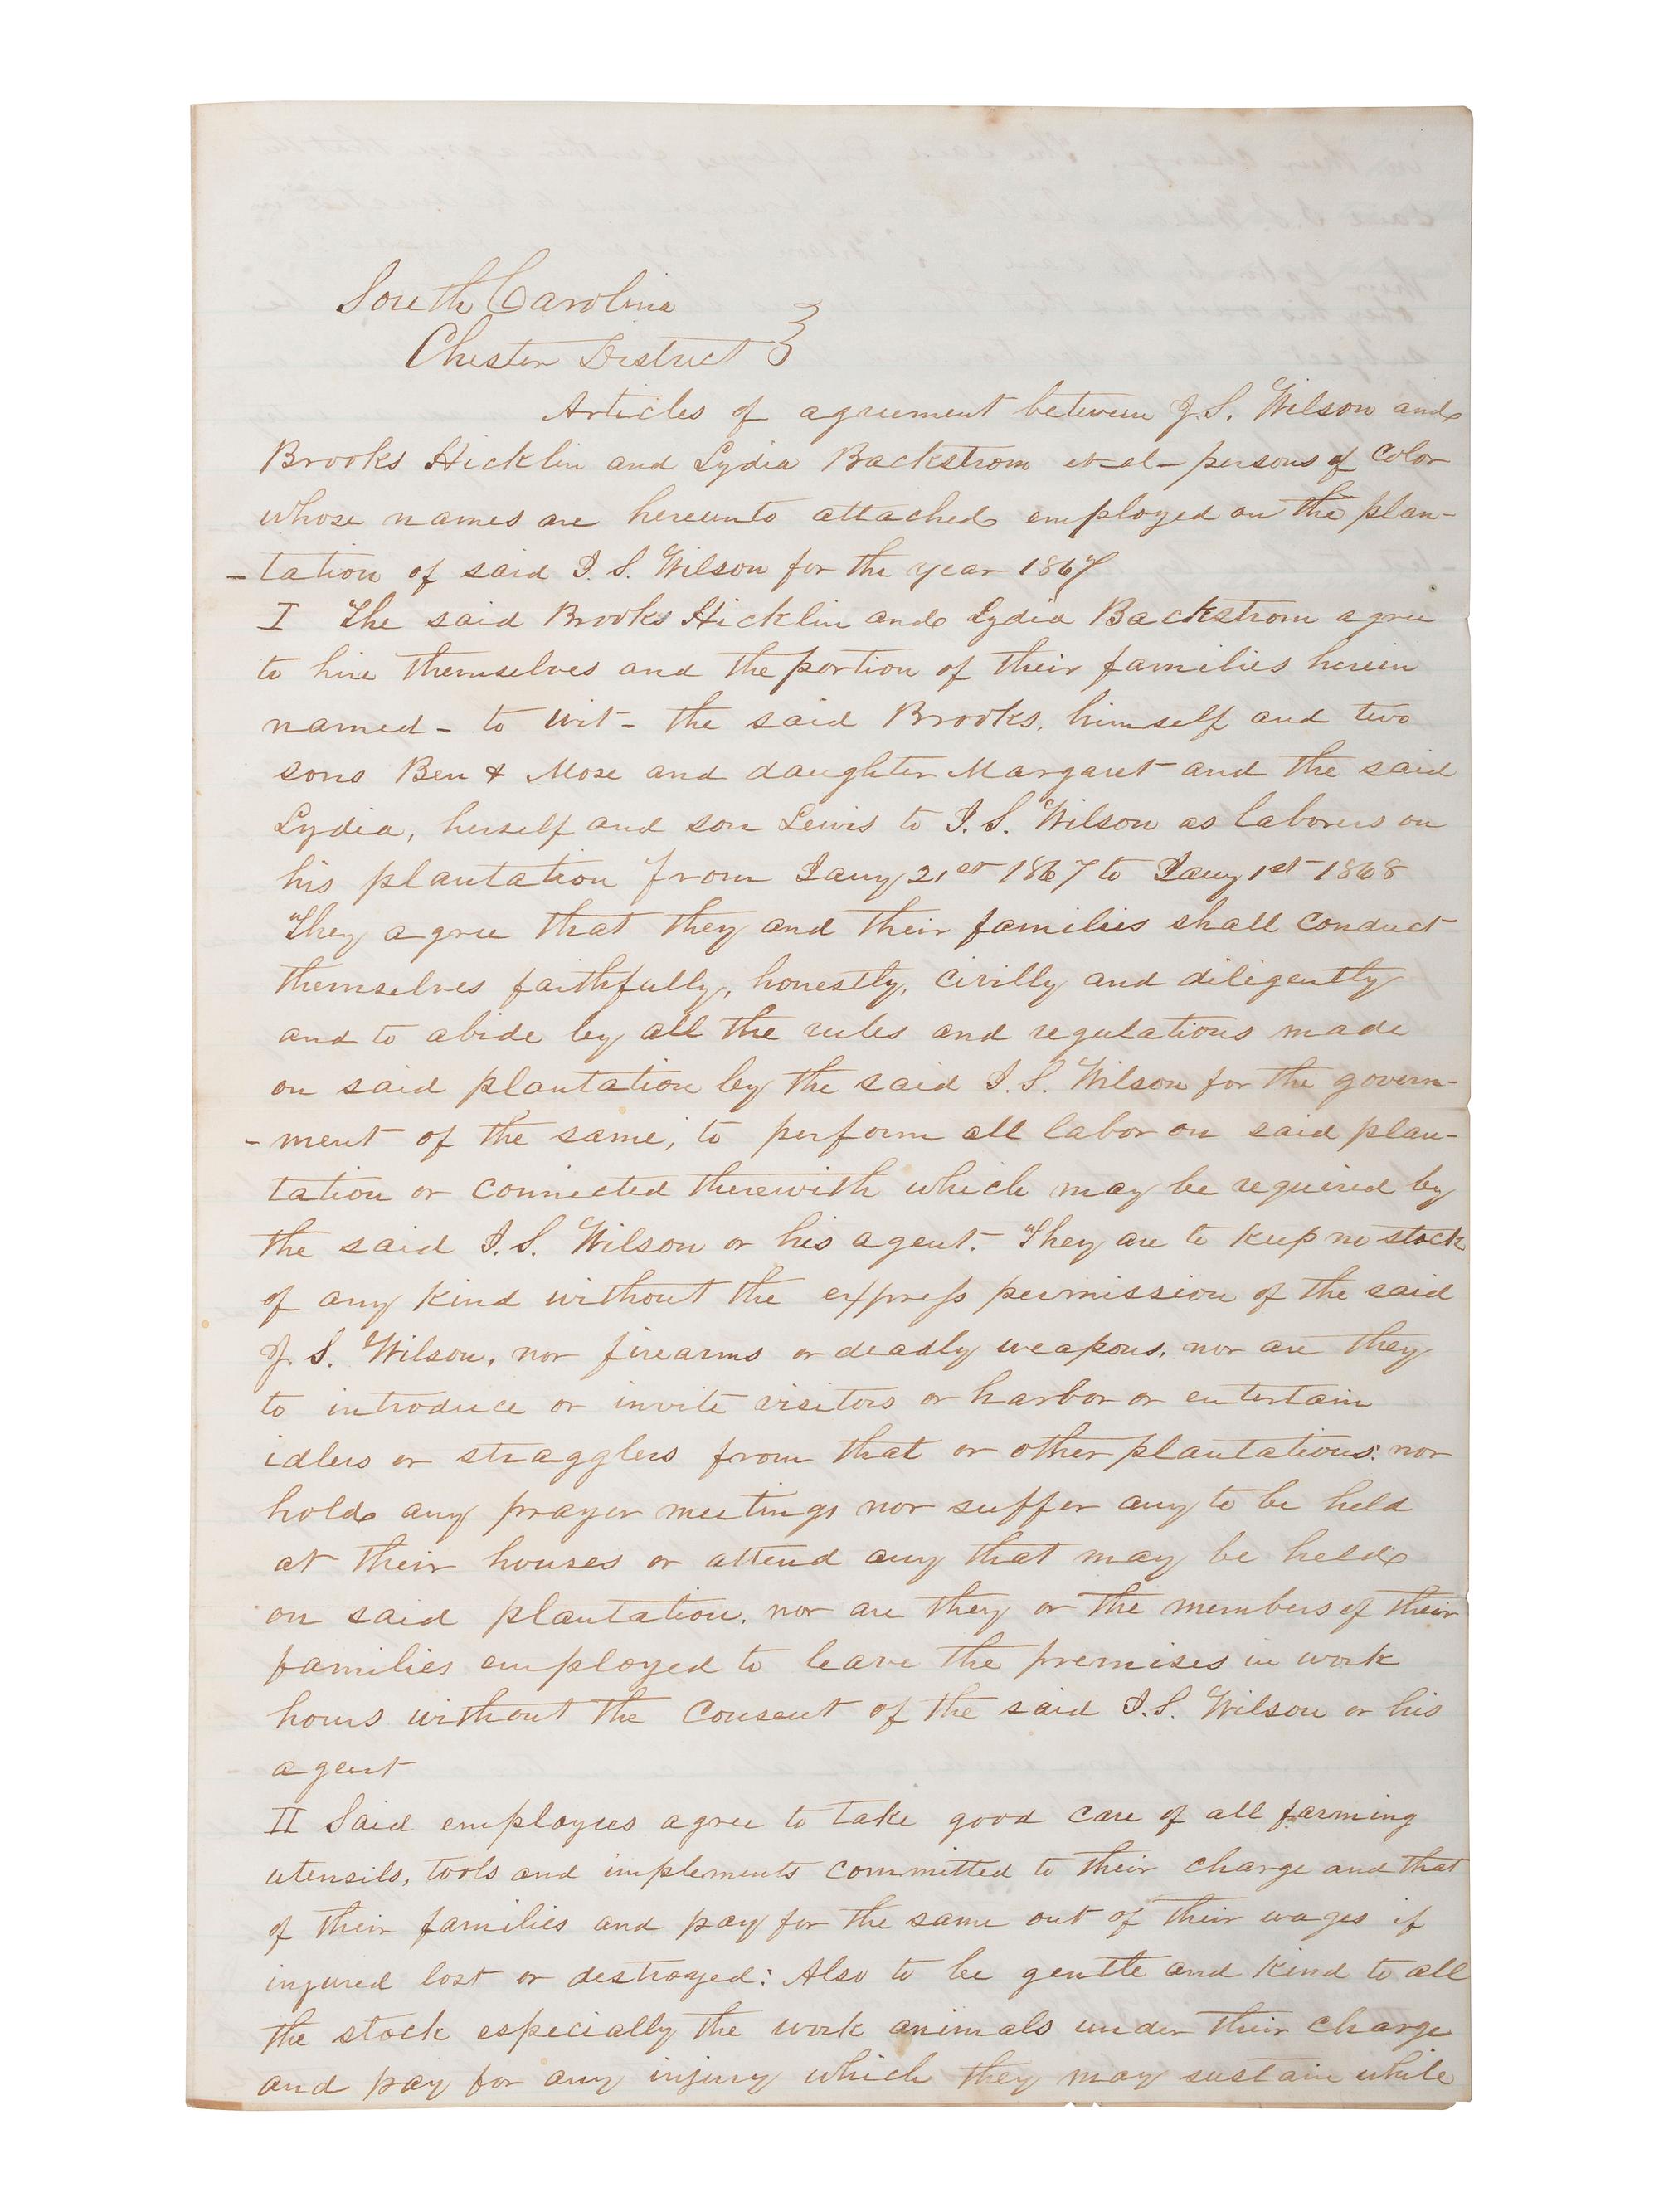 South Carolina
Chester District
Articles of agreement between J. S. Wilson and
Brooks Hicklin and Lydia Backstrom et-al- persons of Color
whose names are hereunto attached employed on the plan-
-tation of said J. S. Wilson for the year 1867
I The said Brooks Hicklin and Lydia Backstrom agree
to hire themselves and the portion of their families herein
named - to wit - the said Brooks, himself and two
sons Ben & Mose and daughter Margaret and the said
Lydia, herself and son Lewis to J. S. Wilson as laborers on
his plantation from Jany 21st 1867 to Jany 1st 1868
They agree that they and their families shall conduct
themselves faithfully, honestly, civilly and diligently
and to abide by all the rules and regulations made
on said plantation by the said J. S. Wilson for the govern-
-ment of the same; to perform all labor on said plan-
tation or connected therewith which may be required by
the said J. S. Wilson or his agent. They are to keep no stock
of any kind without the express permission of the said
J. S. Wilson, nor firearms or deadly weapons, nor are they
to introduce or invite visitors or harbor or entertain
idlers or stragglers from that or other plantations: nor
hold any prayer meetings nor suffer any to be held
at their houses or attend any that may be held
on said plantation, nor are they or the members of their
families employed to leave the premises in work
hours without the Consent of the said J. S. Wilson or his
agent
II Said employees agree to take good care of all farming
utensils, tools and implements committed to their charge and that
of their families and pay for the same out of their wages if
injured lost or destroyed: Also to be gentle and kind to all
the stock especially the work animals under their charge
and pay for any injury which they may sustain while